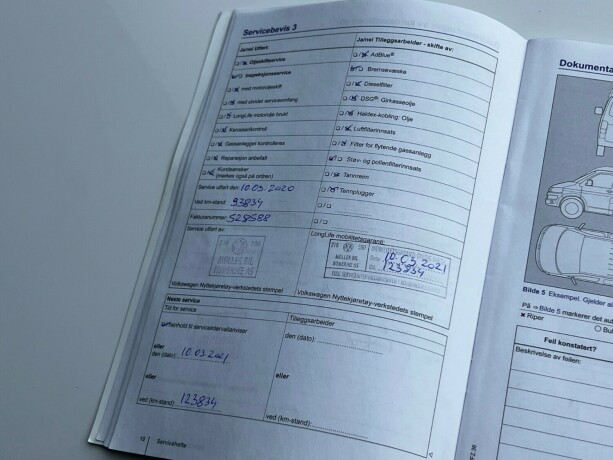 Servicebevis 3
Ja/nei Utført:
Ja/nei Tilleggsarbeider - skifte av:
□/□ Oljeskiftservice
□/□ AdBlue®
□/□ Inspeksjonsservice
□/□ Bremsevæske
□/□ med motoroljeskift
□/□ Dieselfilter
□/□ med utvidet serviceomfang
□/□ DSG® Girkasseolje
□/□ LongLife motorolje brukt
□/□ Haldex-kobling: Olje
□/□ Karosserikontroll
□/□ Luftfilterinnsats
□/□ Gassanlegget kontrolleres
□/□ Filter for flytende gassanlegg
□/□ Reparasjon anbefalt
□/□ Støv- og pollenfilterinnsats
□/□ Kundeønsker
(merkes også på ordren)
□/□ Tannreim
Service utført den: 10.03.2020
□/□ Tennplugger
Ved km-stand: 93834
□/□
Fakturanummer: 528588
□/□
Service utført av:
LongLife mobilitetsgaranti:
MØLLER BIL
10.03.2021
123834
Volkswagen Nyttekjøretøy-verkstedets stempel
Volkswagen Nyttekjøretøy-verkstedets stempel
Neste service
Tid for service
Tilleggsarbeider
i henhold til serviceintervallanviser
den (dato):
eller
den (dato): 10.03.2021
eller
eller
ved (km-stand): 123834
ved (km-stand):
10 Servicehefte
Dokumenta
Bilde 5 Eksempel. Gjelder a
På ⇒ Bilde 5 markerer det aut
× Riper
○ Bul
Feil konstatert?
Beskrivelse av feilen: